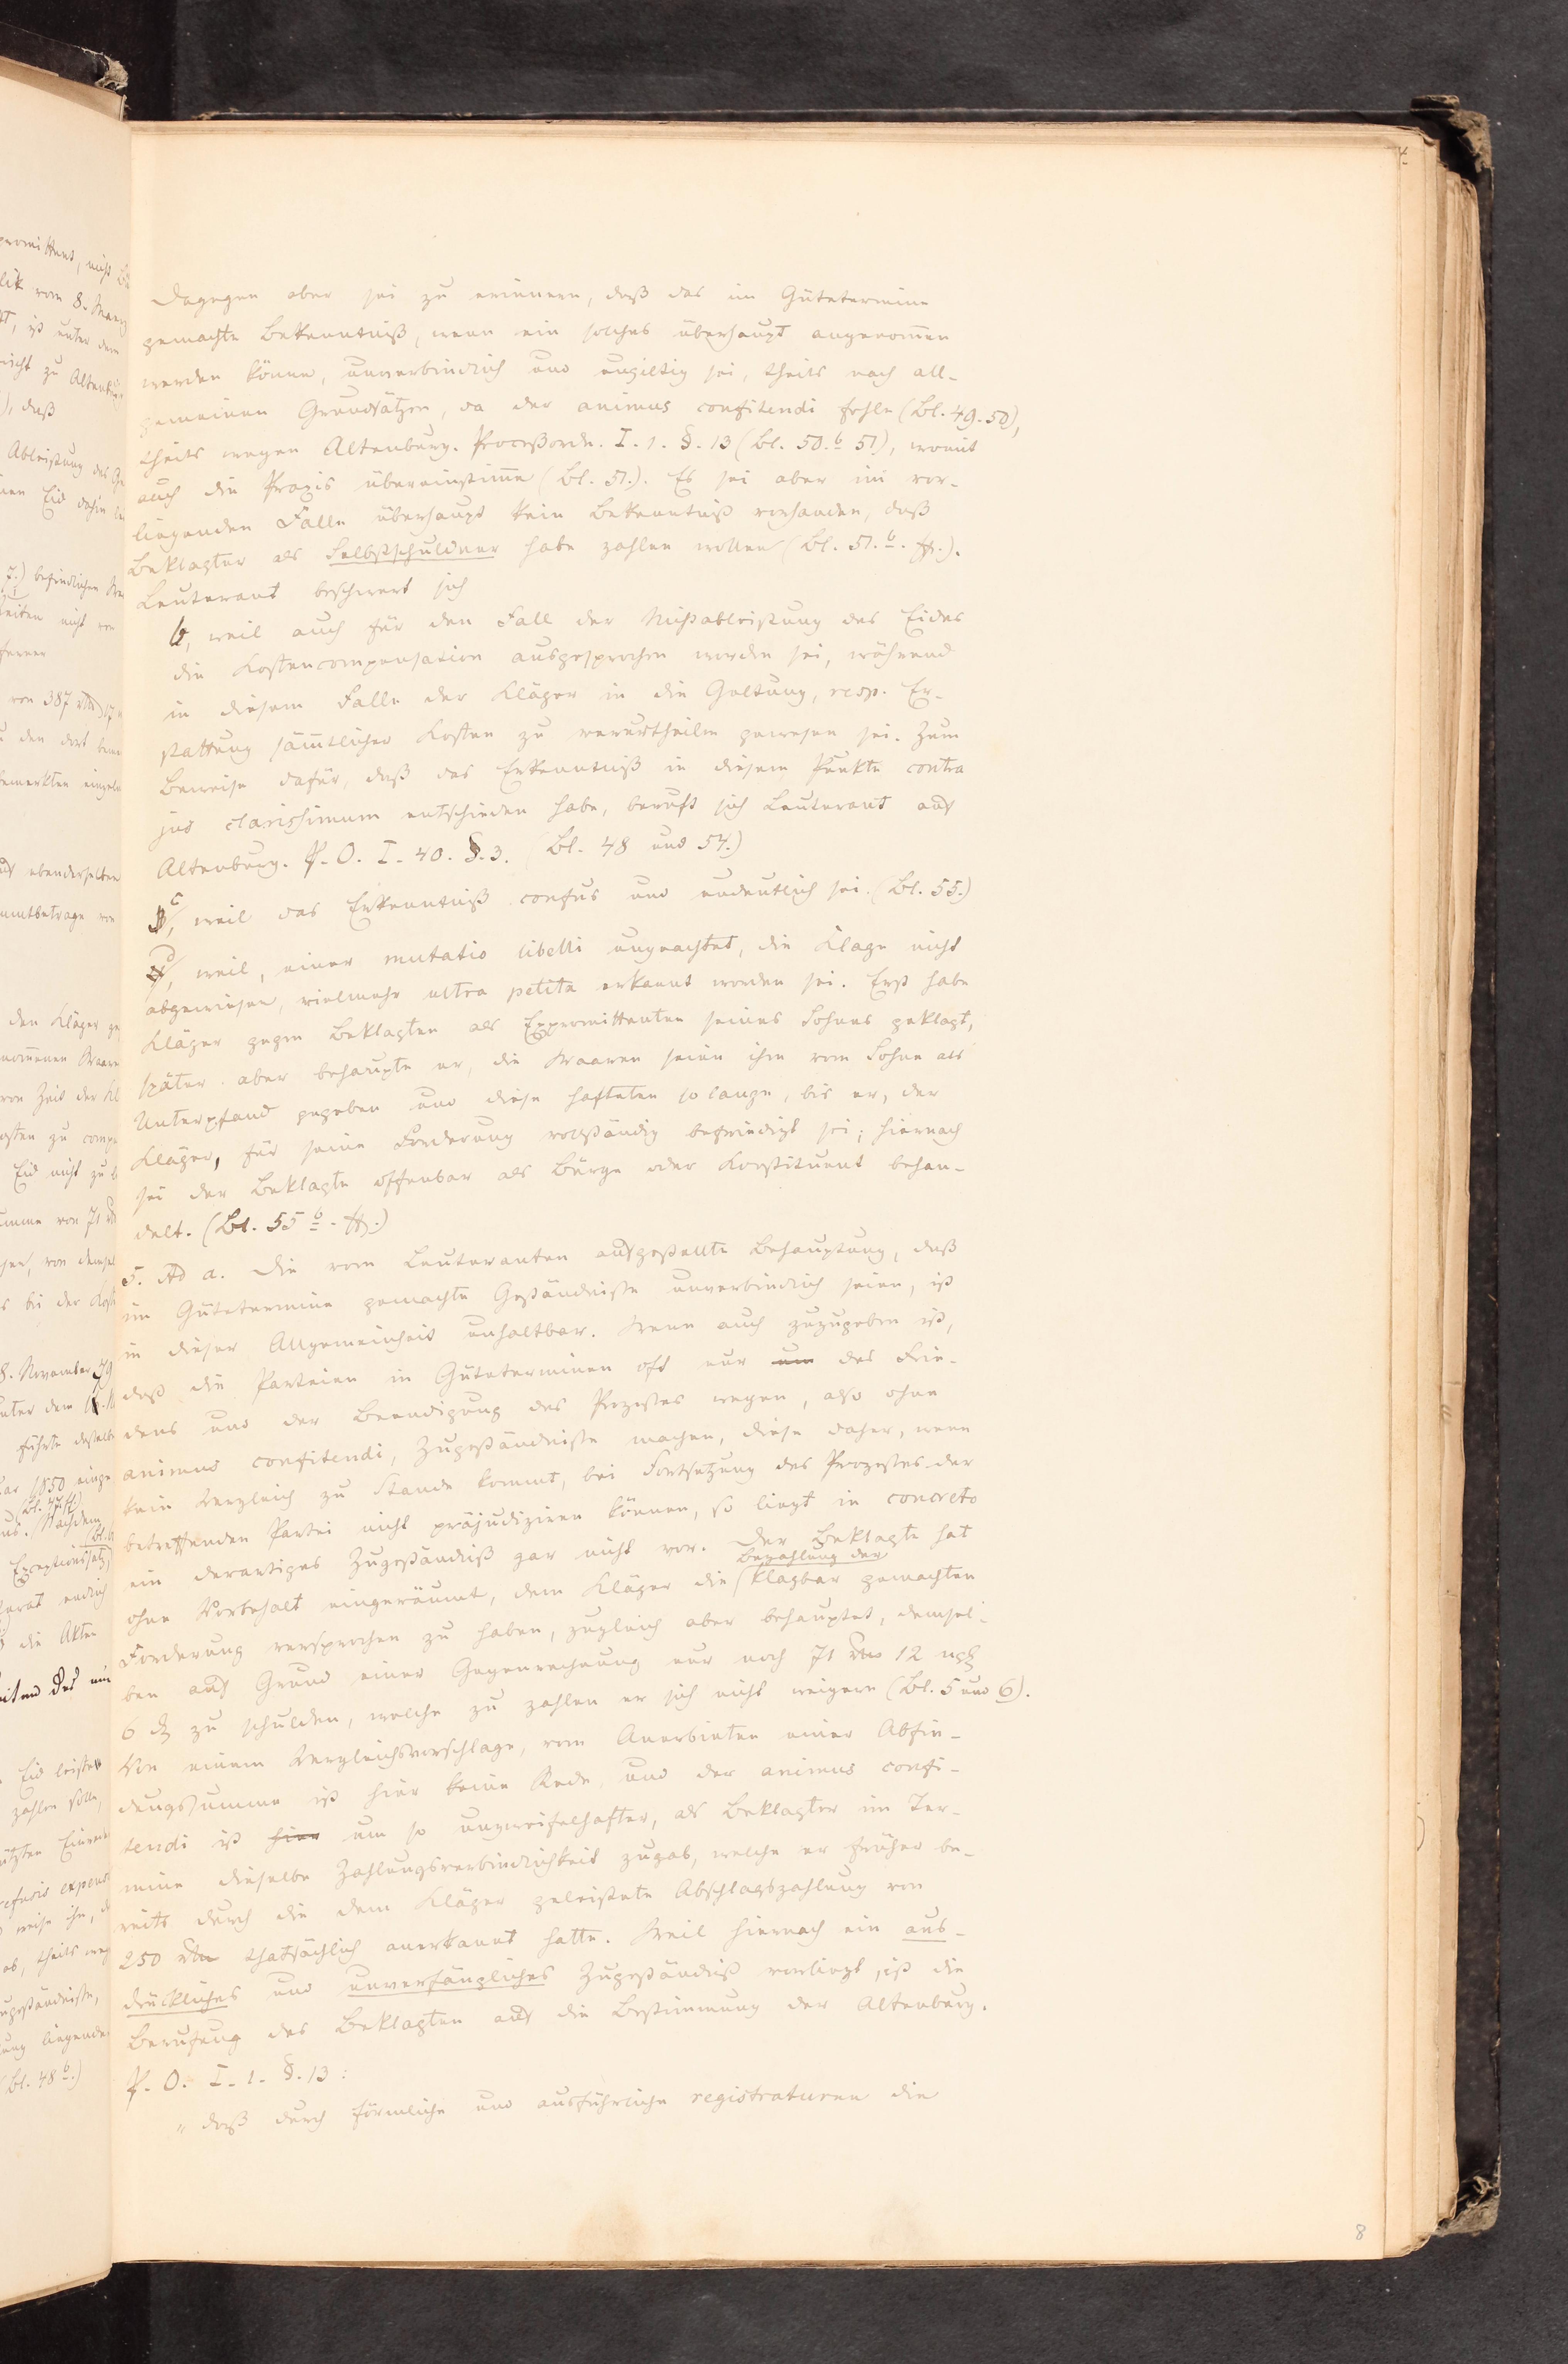 4.
Dagegen aber sei zu erinnern, daß das im Gütetermine
gemachte Bekenntniß, wenn ein solches überhaupt angenom̄en
werden könne, unverbindlich und ungiltig sei, theils nach all-
gemeinen Grundsätzen, da der animus confitendi fehle (Bl. 49. 50),
theils wegen Altenburg. Proceßordn. I. 1. §. 13 (Bl. 50.b 51), womit
auch die Praxis übereinstim̄e (Bl. 51.). Es sei aber im vor-
liegenden Falle überhaupt kein Bekenntniß vorhanden, daß
Beklagter als Selbstschuldner habe zahlen wollen (Bl. 51.b. ff.).
Leuterant beschwert sich
b, weil auch für den Fall der Nichtableistung des Eides
die Kostencompensation ausgesprochen worden sei, während
in diesem Falle der Kläger in die Geltung, resp. Er-
stattung säm̄tlicher Kosten zu verurtheilen gewesen sei. Zum
Beweise dafür, daß das Erkenntniß in diesem Punkte contra
jus clarissimum entschieden habe, beruft sich Leuterant auf
Altenburg. P. O. I. 40. §. 3. (Bl. 48 und 54.)
c, weil das Erkenntniß confus und undeutlich sei. (Bl. 55.)
d, weil, einer mutatio libelli ungeachtet, die Klage nicht
abgewiesen, vielmehr ultra petita erkannt worden sei. Erst habe
Kläger gegen Beklagten als Expromittenten seines Sohnes geklagt,
später aber behaupte er, die Waaren seien ihm vom Sohne als
Unterpfand gegeben und diese hafteten so lange, bis er, der
Kläger, für seine Forderung vollständig befriedigt sei; hiernach
sei der Beklagte offenbar als Bürge oder Konstituent behan-
delt. (Bl. 55 b. ff.)
5. Ad a. Die vom Leuteranten aufgestellte Behauptung, daß
im Gütetermine gemachte Geständnisse unverbindlich seien, ist
in dieser Allgemeinheit unhaltbar. Wenn auch zuzugeben ist,
daß die Parteien in Güteterminen oft nur um des Frie-
dens und der Beendigung des Prozesses wegen, also ohne
animus confitendi, Zugeständnisse machen, diese daher, wenn
kein Vergleich zu Stande kommt, bei Fortsetzung des Prozesses der
betreffenden Partei nicht präjudiziren können, so liegt in concreto
ein derartiges Zugeständniß gar nicht vor. Der Beklagte hat
ohne Vorbehalt eingeräumt, dem Kläger die Bezahlung der klagbar gemachten
Forderung versprochen zu haben, zugleich aber behauptet, demsel-
ben auf Grund einer Gegenrechnung nur noch 71 rthl 12 ngl
6 d zu schulden, welche zu zahlen er sich nicht weigere (Bl. 5 und 6).
Von einem Vergleichsvorschlage, vom Anerbieten einer Abfin-
dungssumme ist hier keine Rede, und der animus confi-
tendi ist hier um so unzweifelhafter, als Beklagter im Ter-
mine dieselbe Zahlungsverbindlichkeit zugab, welche er früher be-
reits durch die dem Kläger geleistete Abschlagszahlung von
250 rthl thatsächlich anerkannt hatte. Weil hiernach ein aus-
drückliches und unverfängliches Zugeständniß vorliegt, ist die
Berufung des Beklagten auf die Bestimmung der Altenburg.
P. O. I. 1. §. 13:
"daß durch förmliche und ausführliche registraturen die
8